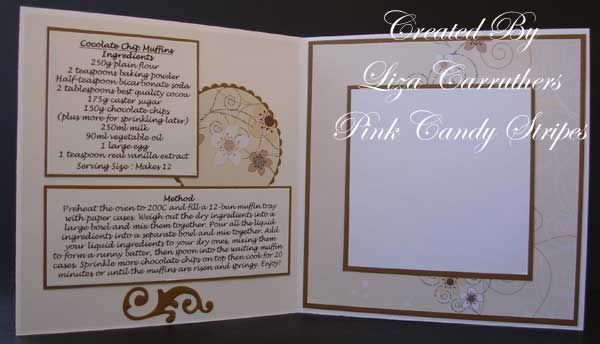 Cocolate Chip Muffins
Ingredients
250g plain flour
2 teaspoons baking powder
Half-teaspoon bicarbonate soda
2 tablespoons best quality cocoa
175g caster sugar
150g chocolate chips
(plus more for sprinkling later)
250ml milk
90ml vegetable oil
1 large egg
1 teaspoon real vanilla extract
Serving Size : Makes 12
Method
Preheat the oven to 200C and fill a 12-bun muffin tray
with paper cases. Weigh out the dry ingredients into a
large bowl and mix them together. Pour all the liquid
ingredients into a separate bowl and mix together. Add
your liquid ingredients to your dry ones, mixing them
to form a runny batter, then spoon into the waiting muffin
cases. Sprinkle more chocolate chips on top then cook for 20
minutes or until the muffins are risen and springy. Enjoy!
Created By
Liza Carruthers
Pink Candy Stripes